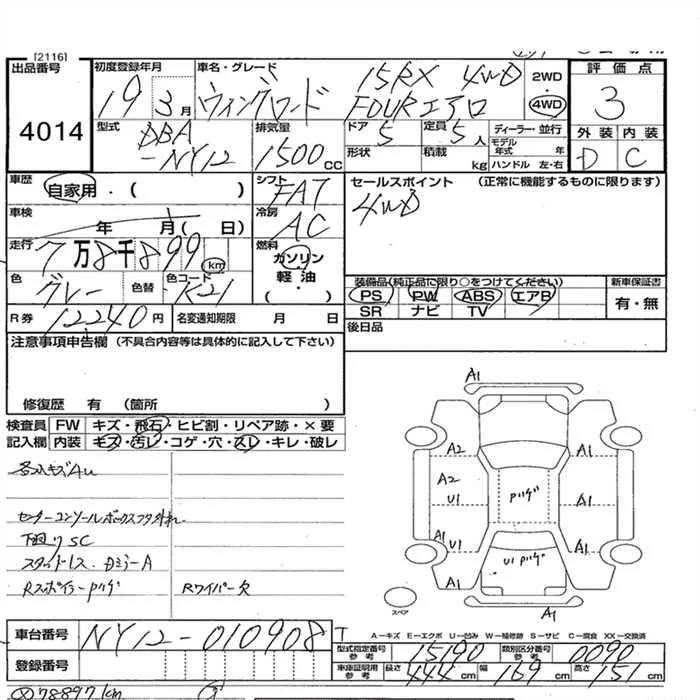 [2116]
出品番号
4014
初度登録年月
19 3月
車名・グレード
15RX 4WD
FOURエアロ
2WD
・
4WD
評価点
3
外装 内装
D C
型式
DBA
-NY12
排気量
1500cc
ドア
5
定員
5人
形状
積載
kg
ディーラー・並行
モデル
年式 年
ハンドル 左・右
車歴
自家用・( )
シフト
FAT
セールスポイント (正常に機能するものに限ります)
4WD
車検
年 月( 日)
冷房
AC
走行
7万8千899km
燃料
ガソリン
軽油・
( )
色
グレー
色替
色コード
K21
装備品(純正品に限り○をつけてください)
新車保証書
PS PW ABS エアB
有・無
SR ナビ TV
R券
12240円
名変通知期限 月 日
後日品
注意事項申告欄 (不具合内容等は具体的に記入して下さい)
修復歴 有 (箇所 )
検査員 FW キズ・飛石・ヒビ割・リペア跡・×要
記入欄 内装 キズ・汚レ・コゲ・穴・スレ・キレ・破レ
センターコンソールボックスフタ外れ
下廻りSC
Rスポイラーハゲ
Rワイパー欠
A1
A2
A1
A2
U1
ハゲ
A1
A1
U1
A1
U1 ハゲ
A1
A1
A1
スペア
車台番号
NY12-010908
登録番号
A-キズ E-エクボ U-凹み W-補修跡 S-サビ C-腐食 XX-交換済
型式指定番号
参考
15190
類別区分番号
参考
0090
車庫証明用
参考
長さ
444cm
幅
169cm
高さ
151cm
78897km